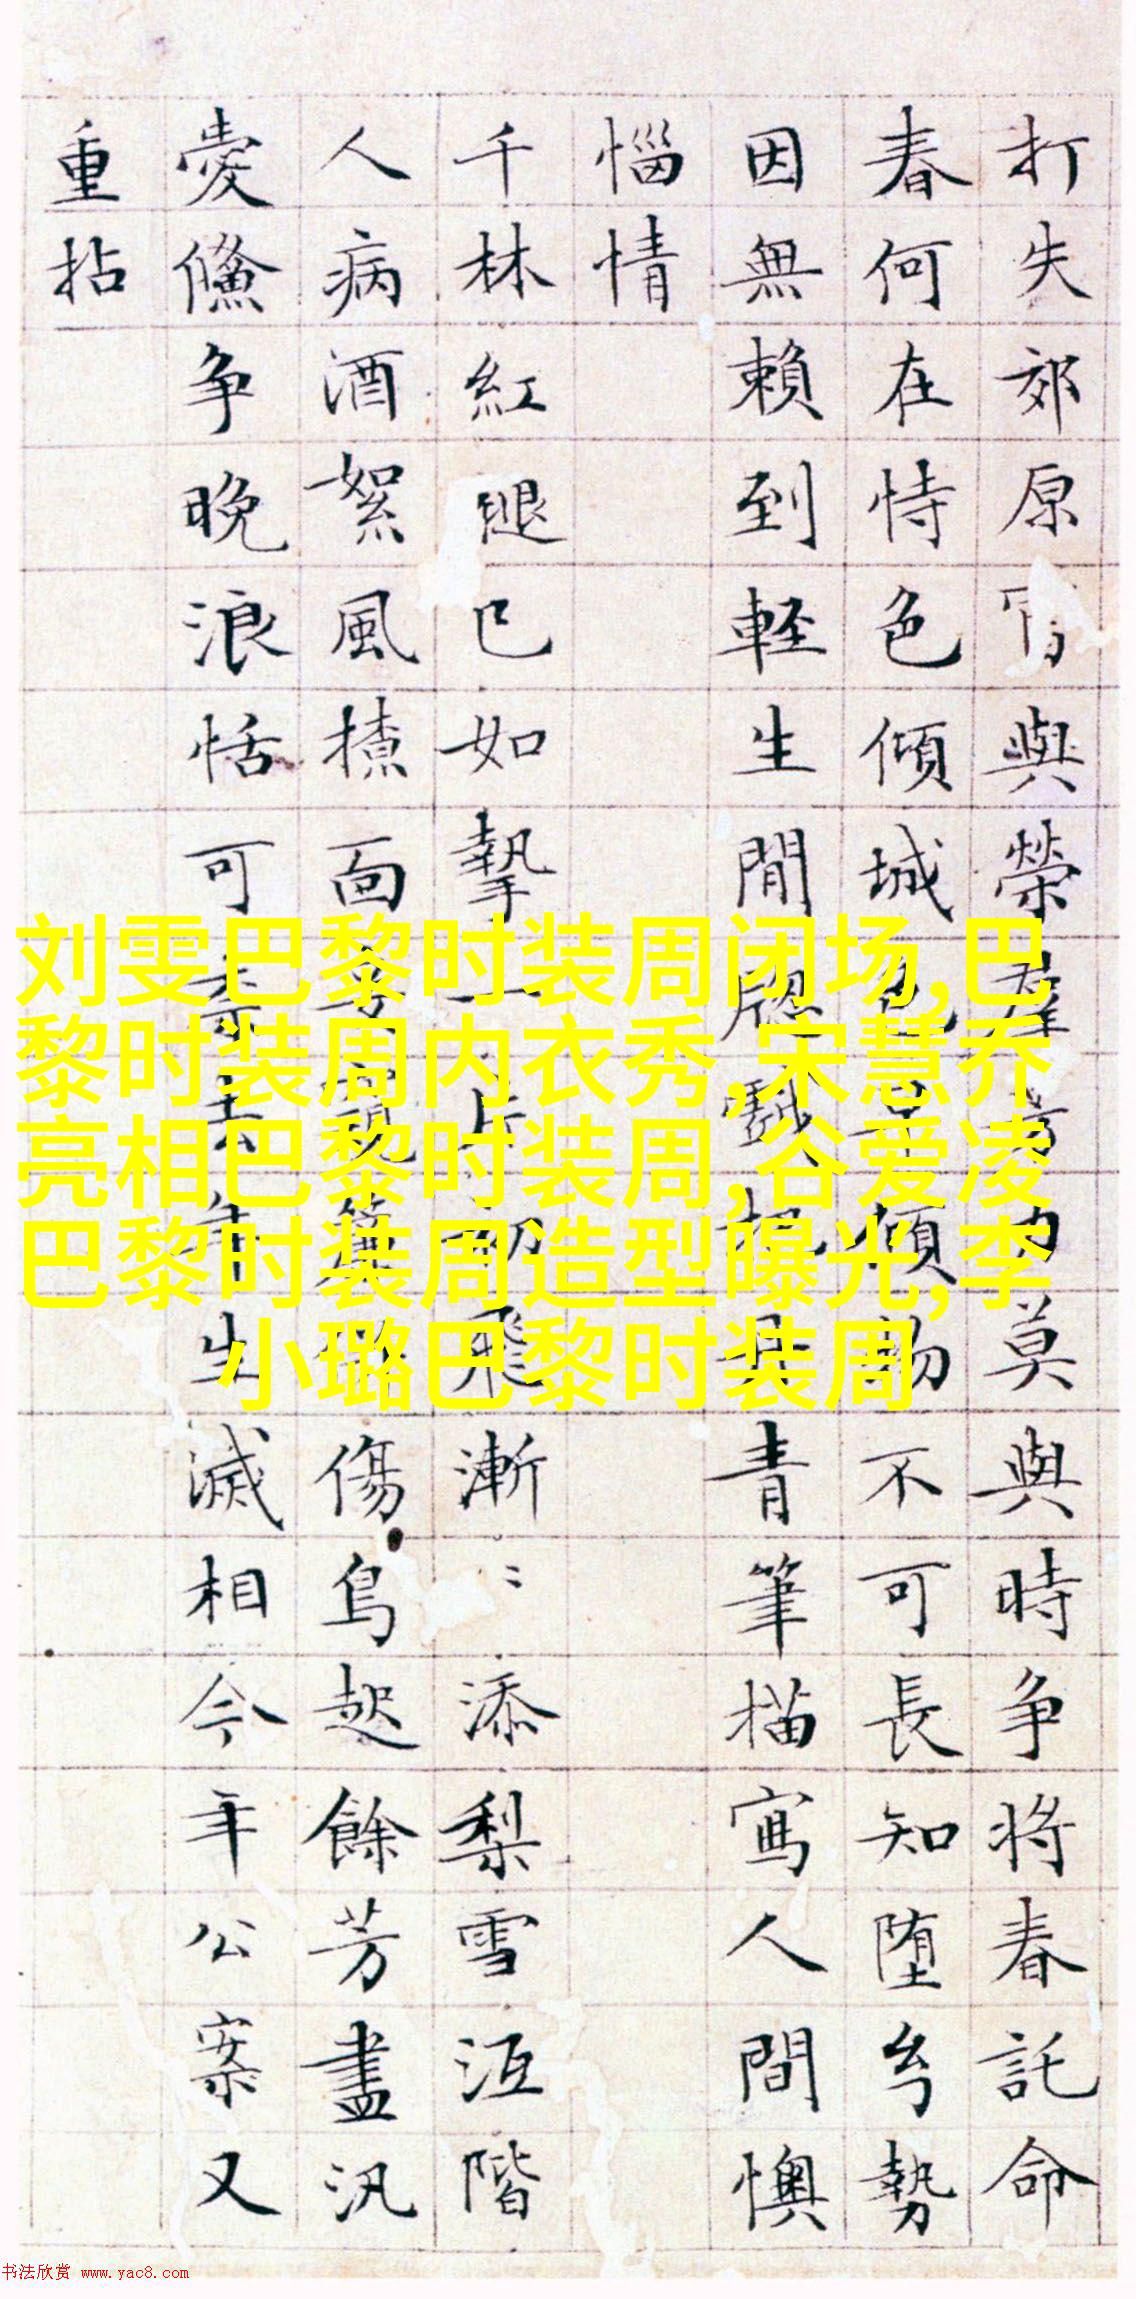 打失郊原與榮羣芳力莫與時争將春託命
春何在恃色傾城色傾物不可長知堕勢
因無賴到輕生間戲把丹青筆描寫人間懊
惱情
千林紅腿已如摯一片初飛漸〻添梨雪沍階
人病酒絮風揍面魂算傷鳥起餘芳盡汎
愛争晚浪恬可奈去年生滅相今年公案又
重拈
刘雯巴黎时装周闭场,巴
黎时装周内衣秀,宋慧乔
亮相巴黎时装周,谷爱凌
巴黎时装周造型曝光,李
小璐巴黎时装周
书法欣赏 www.yac8.com